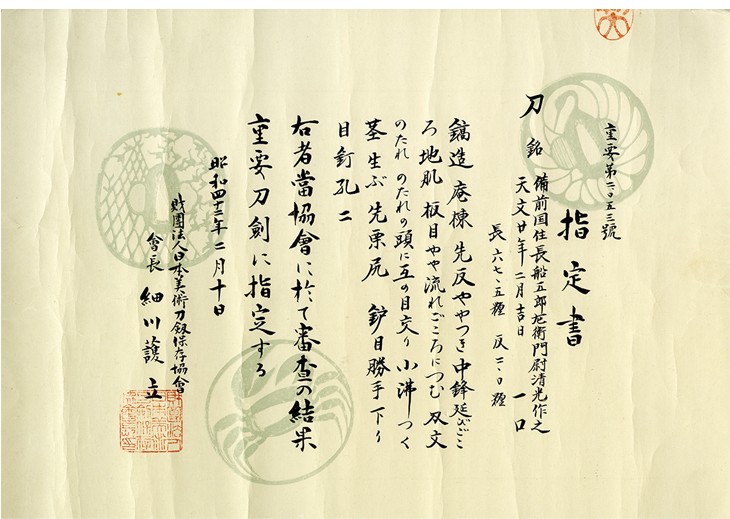 重要第二〇五三號
指定書
刀 銘 備前国住長船五郎左衛門尉清光作之
天文廿年二月吉日 一口
長 六七・五糎 反 二・〇糎
鎬造 庵棟 先反ややつき 中鋒延びごこ
ろ 地肌 板目やや流れごころにつむ 刃文
のたれ のたれの頭に互の目交り 小沸つく
茎 生ぶ 先栗尻 鈩目勝手下り
目釘孔二
右者當協會に於て審査の結果
重要刀劍に指定する
昭和四十二年二月十日
財團法人日本美術刀劍保存協會
會長 細川護立